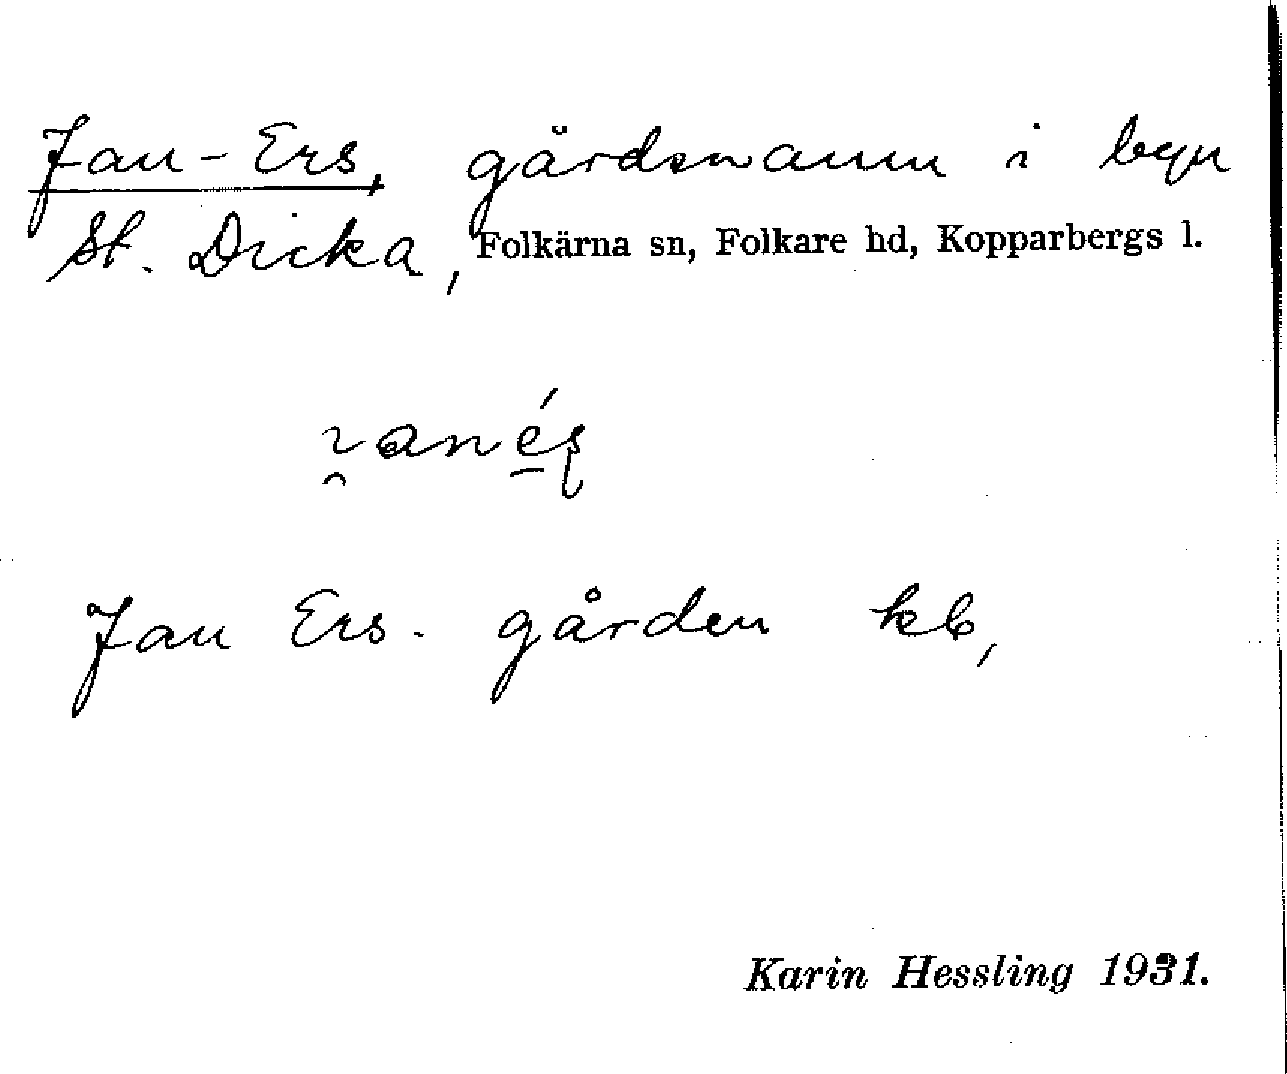 Jan-Ers, gårdsnamn i byn
St. Dicka, Folkärna sn, Folkare hd, Kopparbergs l.
Jan Ers. gården kb,
Karin Hessling 1931.